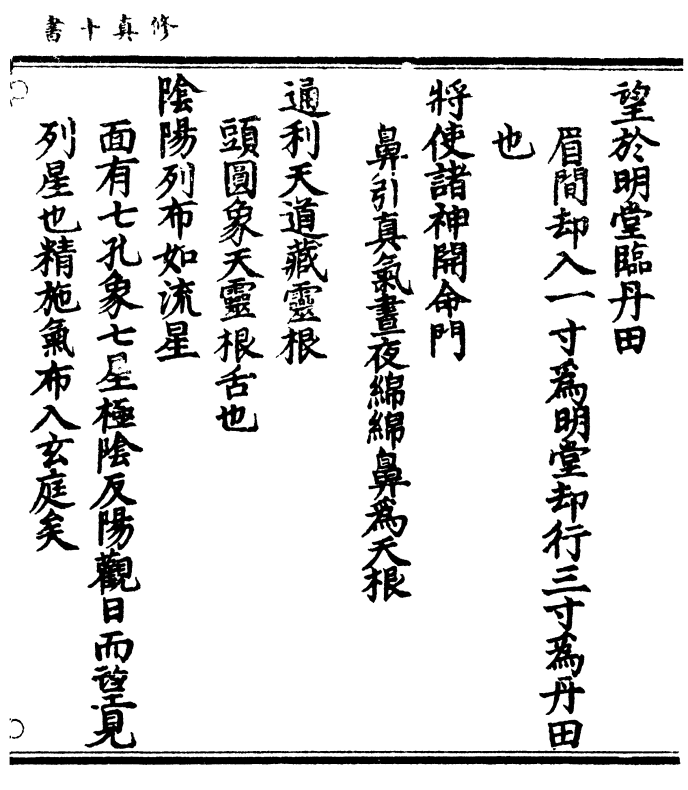 修真十書
望於明堂臨丹田
眉間却入一寸爲明堂却行三寸爲丹田
也
將使諸神開命門
鼻引真氣晝夜綿綿鼻爲天根
通利天道藏靈根
頭圓象天靈根舌也
陰陽列布如流星
面有七孔象七星極陰反陽觀日而望見
列星也精施氣布入玄庭矣